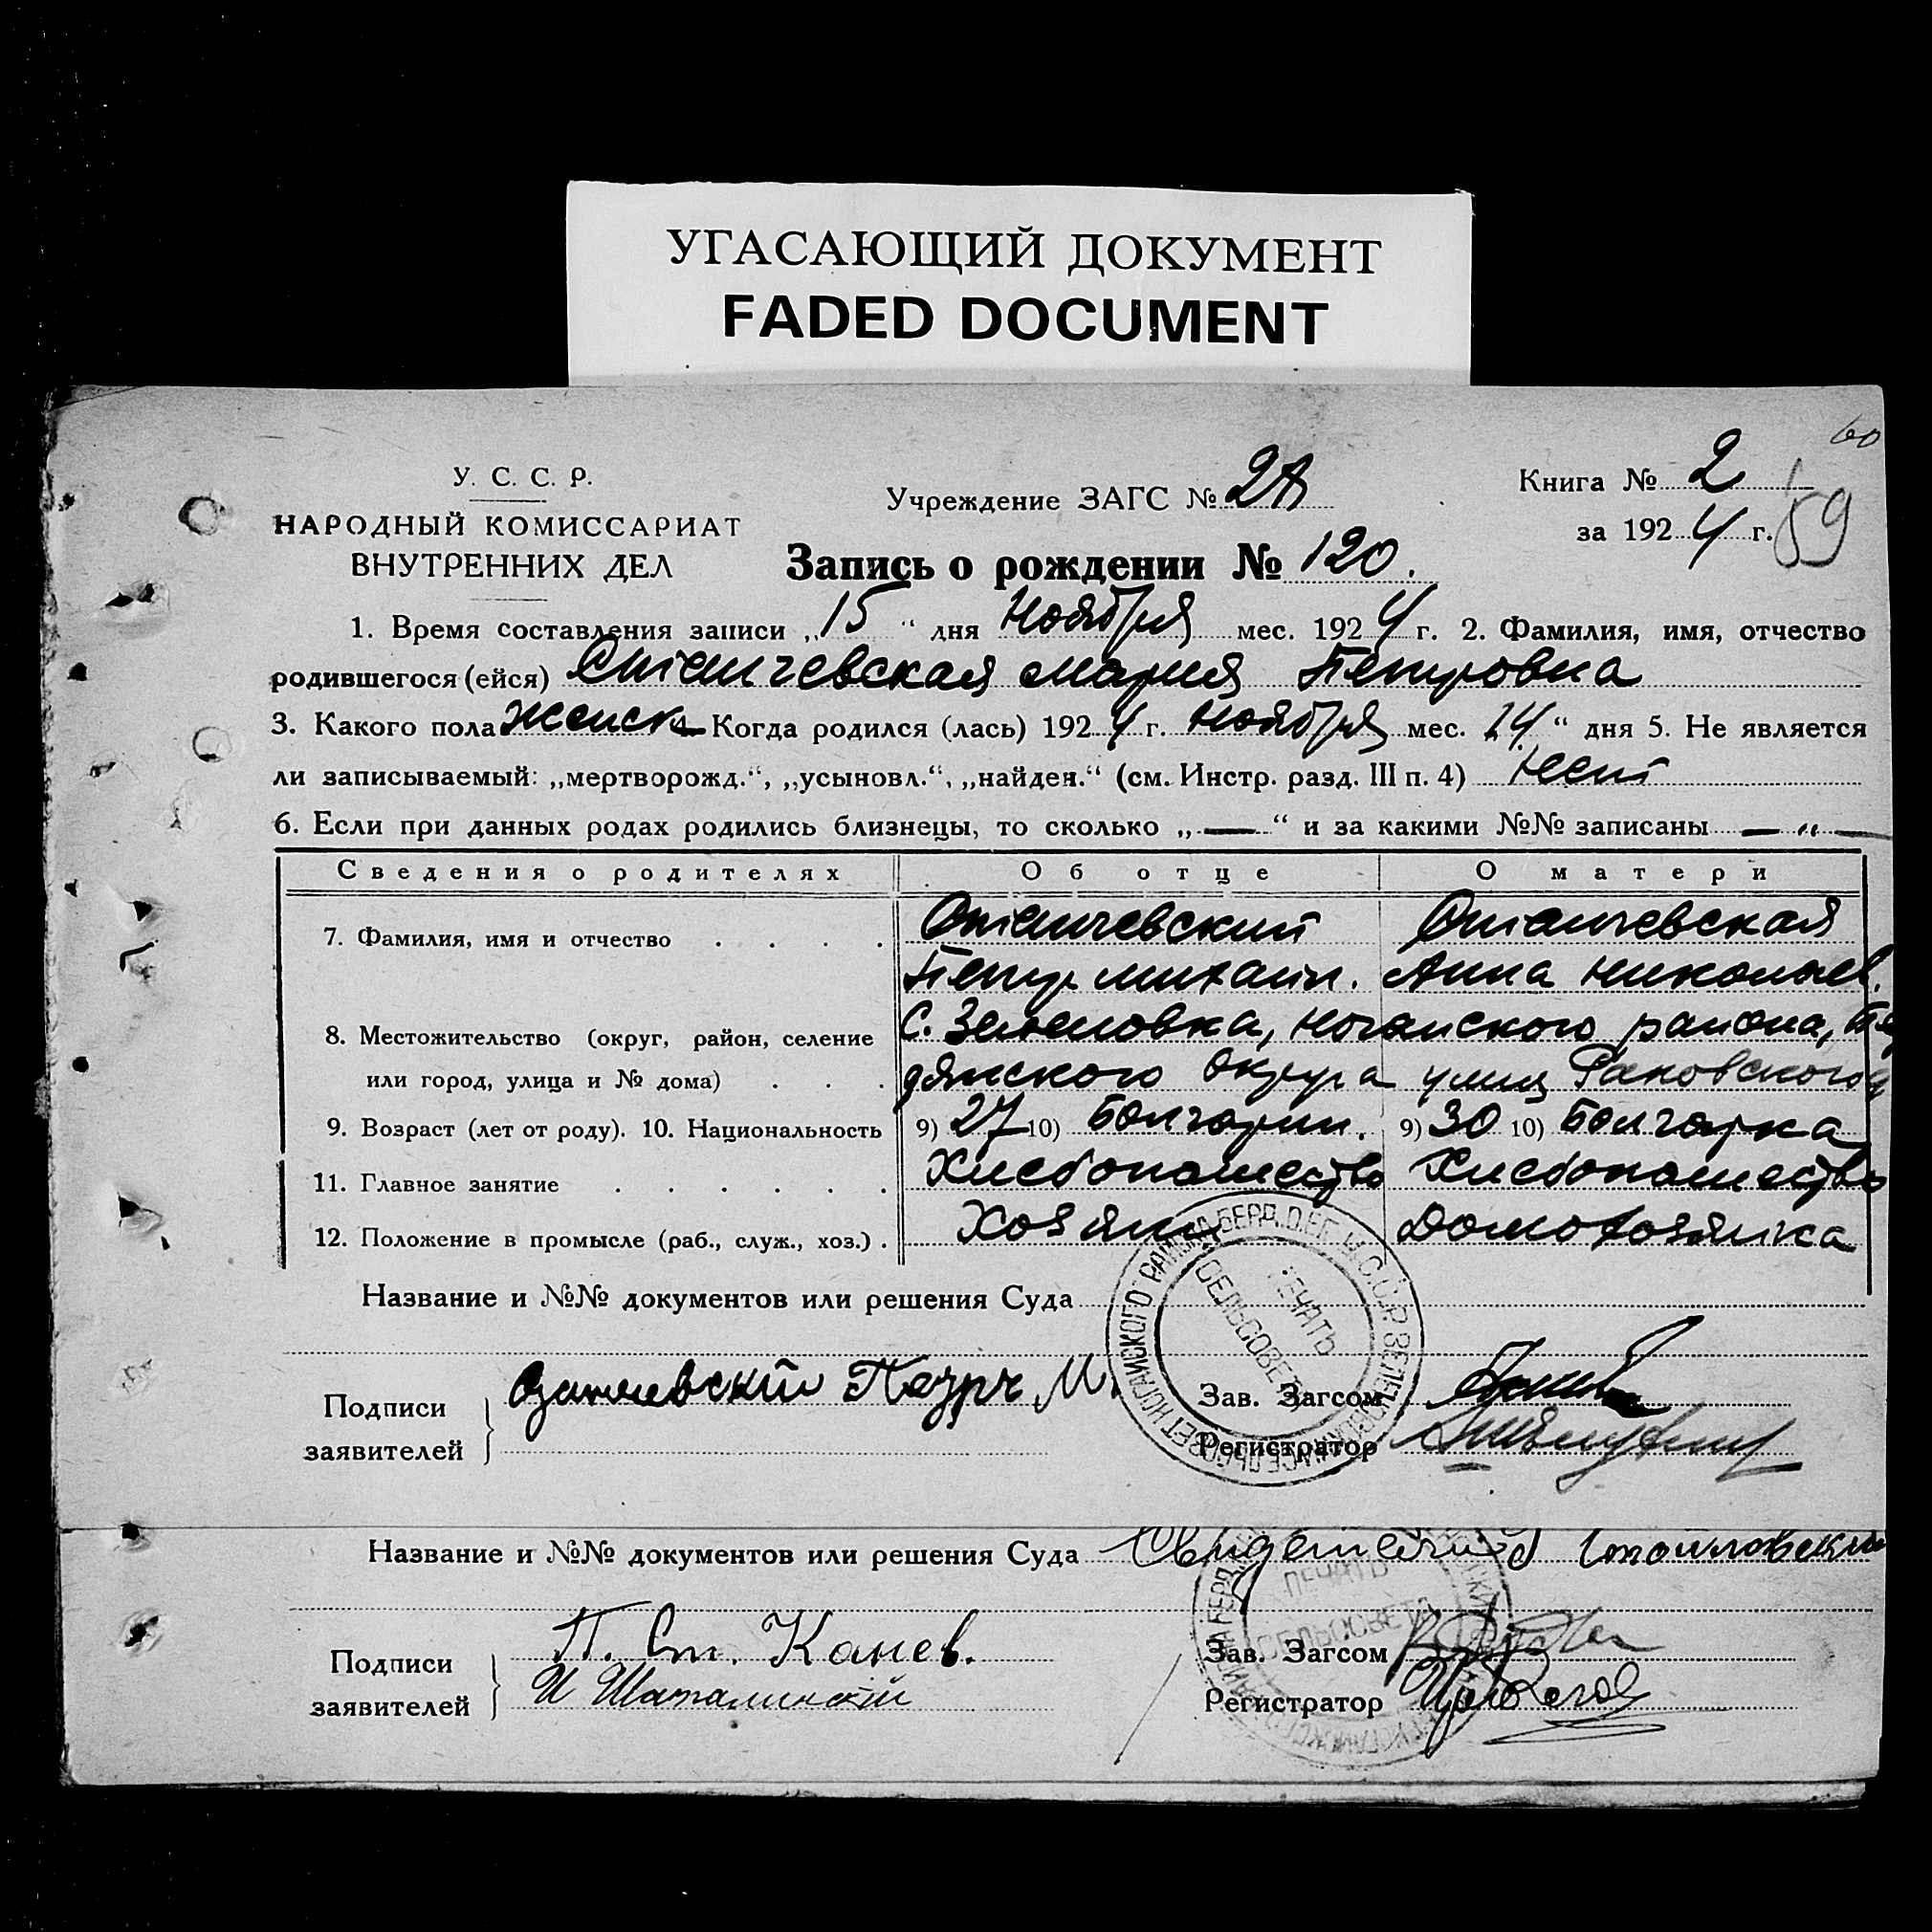 УГАСАЮЩИЙ ДОКУМЕНТ
FADED DOCUMENT
60
У. С. С. Р.
НАРОДНЫЙ КОМИССАРИАТ
ВНУТРЕННИХ ДЕЛ
Учреждение ЗАГС №
Книга № 2
за 1924 г.
59
Запись о рождении № 120.
1. Время составления записи „15" дня Ноября мес. 1924 г. 2. Фамилия, имя, отчество
родившегося (ейся) Мария Петровна
3. Какого пола Женск 4. Когда родился (лась) 1924 г. Ноября мес. „14" дня 5. Не является
ли записываемый: „мертворожд.", „усыновл.", „найден." (см. Инстр. разд. III п. 4) Нет
6. Если при данных родах родились близнецы, то сколько „—" и за какими №№ записаны — „ —
Сведения о родителях Об отце О матери
7. Фамилия, имя и отчество
Петр Михайл. Анна Николаев.
8. Местожительство (округ, район, селение С. Зеленовка, Ногайского района, Бер
или город, улица и № дома) дянского Округа улиц Раковского
9. Возраст (лет от роду). 10. Национальность 9) 27 10) Болгарин. 9) 30 10) Болгарка
11. Главное занятие Хлебопашество Хлебопашество
12. Положение в промысле (раб., служ., хоз.) Хозяин Домохозяйка
Название и №№ документов или решения Суда
ПЕЧАТЬ
СЕЛЬСОВЕТА
Подписи
заявителей
М.
Зав. Загсом
Регистратор
Название и №№ документов или решения Суда
ПЕЧАТЬ
СЕЛЬСОВЕТА
Подписи
заявителей
П. Ст. Канев.
И Шаталинскій
Зав. Загсом
Регистратор